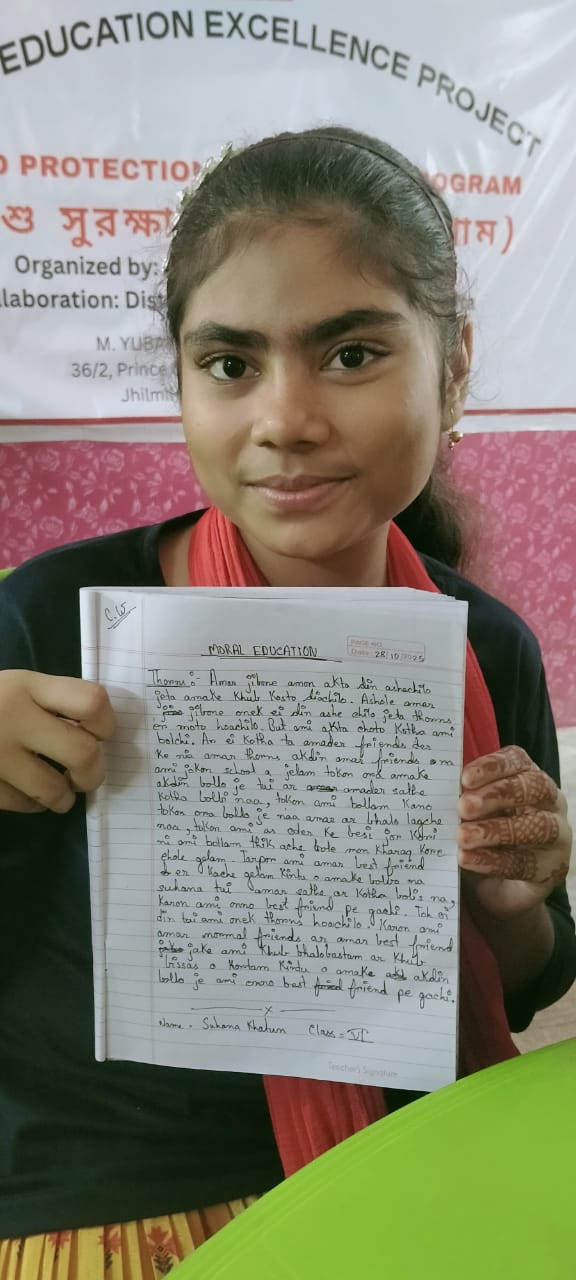 EDUCATION EXCELLENCE PROJECT
PROTECTION OGRAM
শু সুরক্ষা াম)
Organized by:
llaboration: Dist
M. YUBA
36/2, Prince
Jhilmi
C.W
PAGE NO.
MORAL EDUCATION
Date: 28/10/2025
Thorns :- Amar jibone amon akta din ashechilo
jeta amake khub kosto diochilo. Ashole amar
jibone onek ei din ashe chilo jeta thorns
er moto hoachilo. But ami akta choto kotha ami
bolchi. Ar ei kotha ta amader friends der
ke nia amar thorns akdin amar friends na
ami jokon school a jelam tokon ora amake
akdin bollo je tui ar amader sathe
kotha bolbi naa, tokon ami bollam kano
tokon ora bollo je naa amar ar bhalo lagche
naa, tokon ami ar oder ke besi jor kori
ni ami bollam thik ache bole mon kharap kore
chole gelam. Tarpor ami amar best friend
er kache gelam kintu o amake bollo na
suhana tui amar sathe ar kotha bolis na,
karon ami onno best friend pe gachi. Toh oi
din tai ami onek thorns hoachilo. Karon ami
amar normal friends ar amar best friend
jake ami khub bhalobastam ar khub
bissas o kortam kintu o amake akdin
bollo je ami onno best friend pe gachi.
x
Name - Suhana Khatun Class = VI
Teacher's Signature